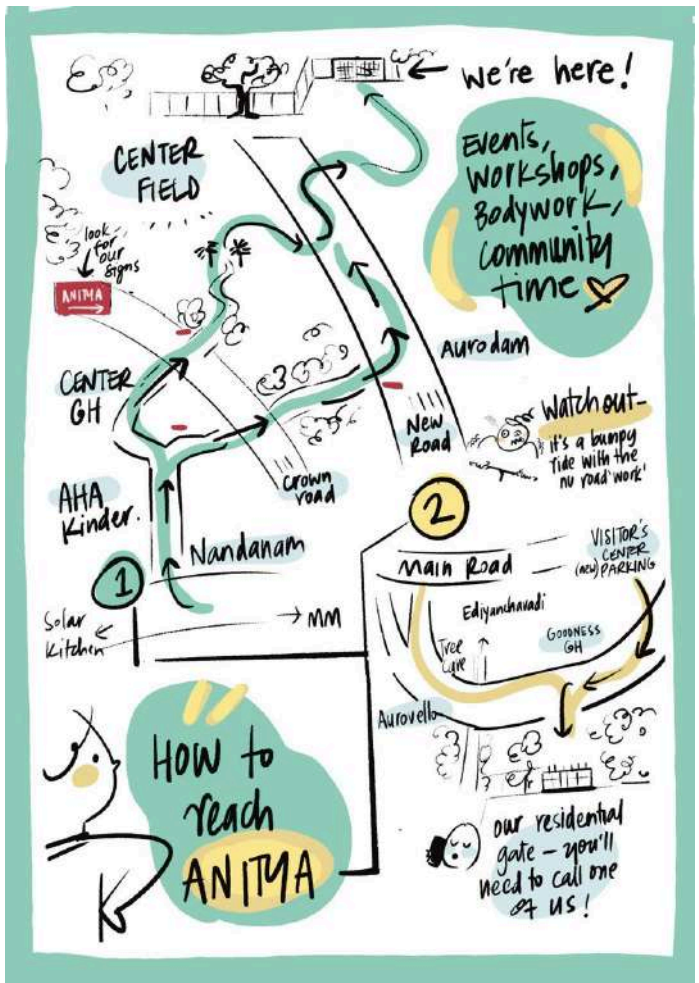 we're here!
CENTER
FIELD
Events,
workshops,
Bodywork,
community
time
look
for
our
signs
ANITYA
CENTER
GH
Aurodam
New
Road
Watch out-
it's a bumpy
ride with the
nu road 'work'
Crown
road
AHA
Kinder.
Nandanam
1
Solar
Kitchen
MM
2
Main Road
VISITOR'S
CENTER
(new) PARKING
Ediyanchavadi
GOODNESS
GH
Tree
Care
Aurovelo
HOW to
reach
ANITYA
our residential
gate – you'll
need to call one
of us!